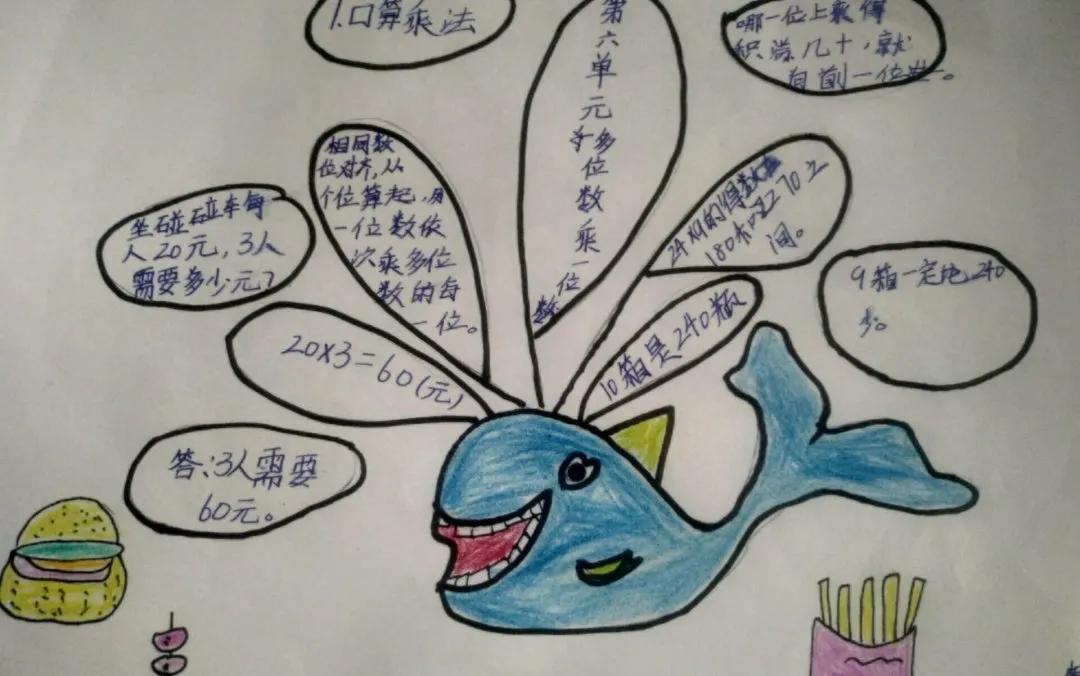 1.口算乘法
第六单元多位数乘一位数
哪一位上乘得
积满几十，就
向前一位进一。
相同数
位对齐，从
个位算起，用
一位数依
次乘多位
数的每
一位。
24×9的得数在
180和270之
间。
坐碰碰车每
人20元，3人
需要多少元？
20×3=60(元)
10箱是240瓶
9箱一定比240
少。
答：3人需要
60元。